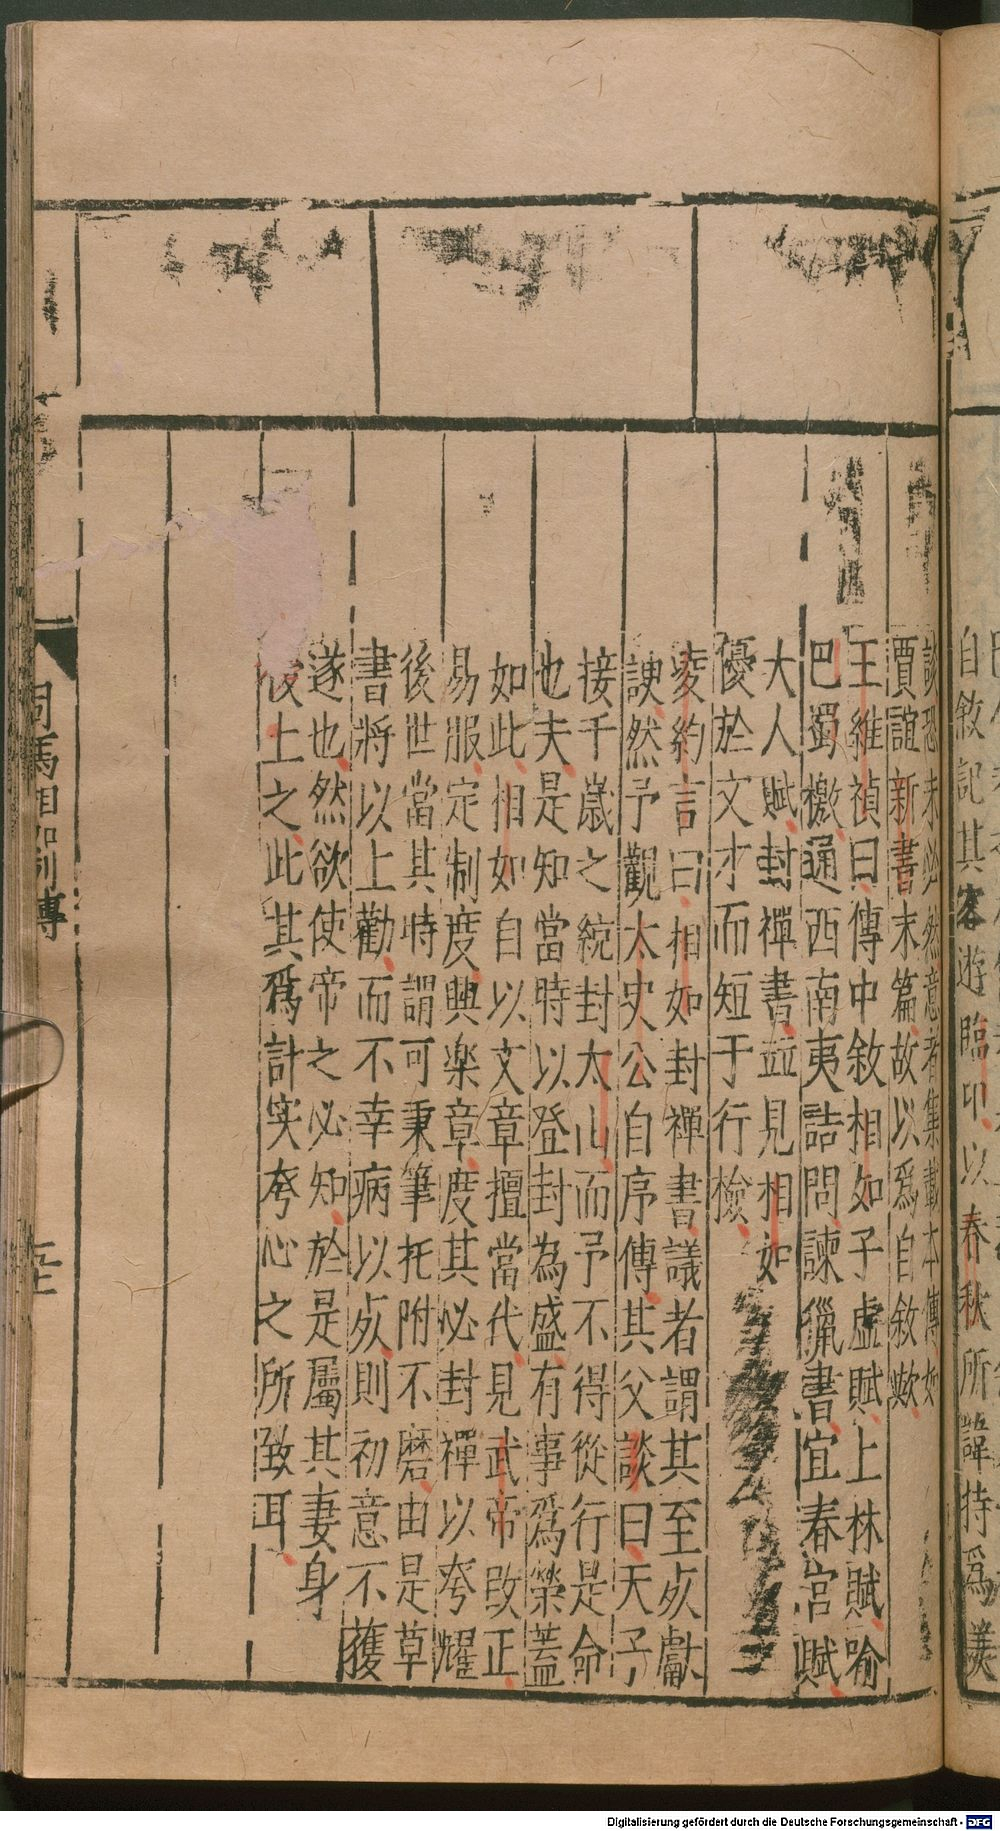 談恐未必然意者集載本傳如
賈誼新書末篇故以爲自敘歟
王維禎曰傳中敘相如子虛賦上林賦喻
巴蜀檄通西南夷詰問諫獵書宜春宮賦
大人賦封禪書並見相如
優於文才而短于行檢
凌約言曰相如封禪書議者謂其至死獻
諛然予觀太史公自序傳其父談曰天子
接千歲之統封太山而予不得從行是命
也夫是知當時以登封為盛有事爲榮蓋
如此相如自以文章擅當代見武帝改正
易服定制度興楽章度其必封禪以夸耀
後世當其時謂可秉筆托附不磨由是草
書將以上勸而不幸病以死則初意不獲
遂也然欲使帝之必知於是屬其妻身
後上之此其爲計实夸心之所致耳
司馬相如列傳
自敘記其客遊臨邛以春秋所諱持爲美
Digitalisierung gefördert durch die Deutsche Forschungsgemeinschaft - DFG